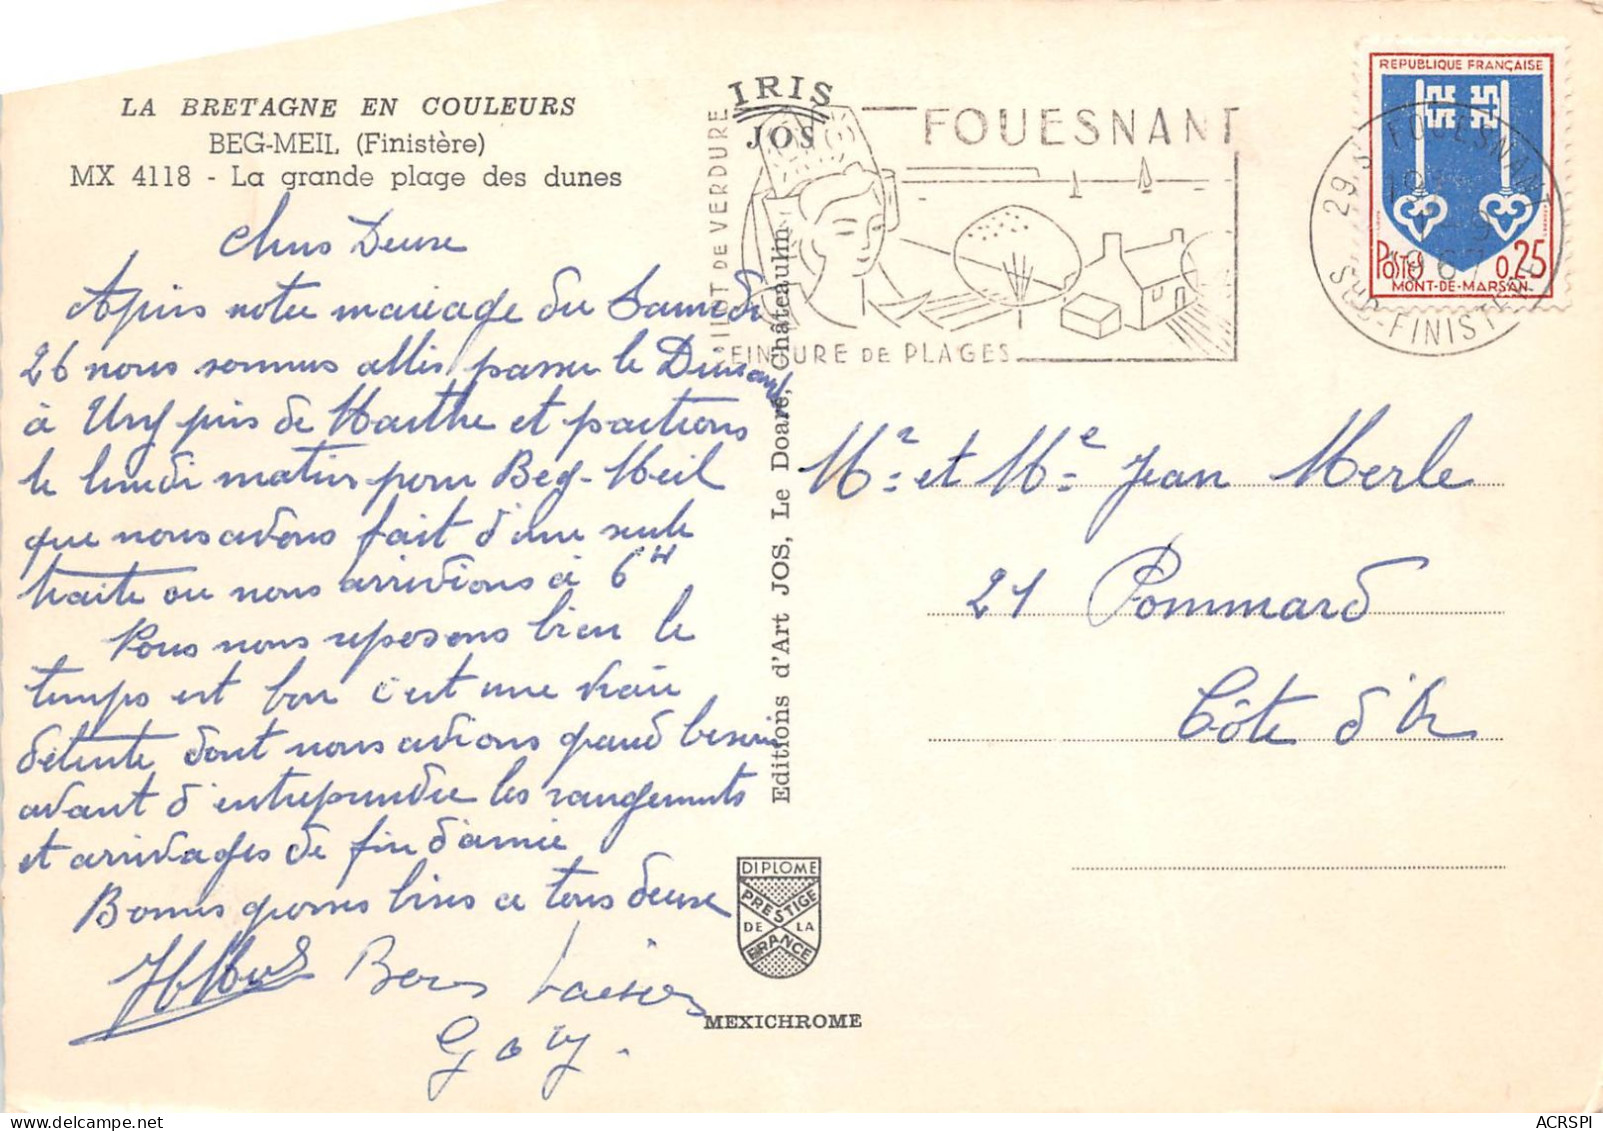 LA BRETAGNE EN COULEURS
BEG-MEIL (Finistère)
MX 4118 - La grande plage des dunes
IRIS
JOS
FOUESNANT
ILOT DE VERDURE
EINTURE DE PLAGES
REPUBLIQUE FRANÇAISE
POSTES 0,25
MONT-DE-MARSAN
29 S FOUESNANT
1967
SUD-FINISTERE
Chers Deux
Après notre mariage du Samedi
26 nous sommes allés passer le Dimanche
à Ury près de Marthe et partions
le lundi matin pour Beg-Meil
que nous avons fait d'une seule
traite ou nous arrivions à 6H
Nous nous reposons bien le
temps est bon c'est une vraie
détente dont nous avions grand besoin
avant d'entreprendre les rangements
et arrivages de fin d'année
Bonnes grosses bises a tous deux
Bons baisers
Gaby.
Mr et Me Jean Merle
21 Pommard
Côte d'Or
Editions d'Art JOS, Le Doaré, Châteaulin
DIPLOME
PRESTIGE
DE LA
FRANCE
MEXICHROME
ACRSPI